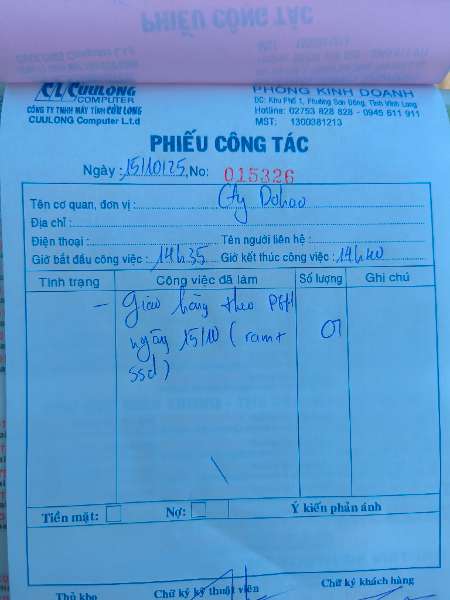 PHIẾU CÔNG TÁC
CUULONG
COMPUTER
CÔNG TY TNHH MÁY TÍNH CỬU LONG
CUULONG Computer L.t.d
PHÒNG KINH DOANH
ĐC: Khu Phố 1, Phường Sơn Đông, Tỉnh Vĩnh Long
Hotline: 02753 828 828 - 0945 611 911
MST: 1300381213
PHIẾU CÔNG TÁC
Ngày: 15/10/25, No: 015326
Tên cơ quan, đơn vị: Cty Dohao
Địa chỉ:
Điện thoại: Tên người liên hệ:
Giờ bắt đầu công việc: 14h35 Giờ kết thúc công việc: 14h40
Tình trạng Công việc đã làm Số lượng Ghi chú
- Giao hàng theo PGH
ngày 15/10 (ram + 01
ssd)
Tiền mặt: Nợ: Ý kiến phản ánh
Thủ kho Chữ ký kỹ thuật viên Chữ ký khách hàng